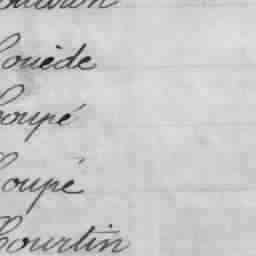 Couède
Coupé
Coupé
Courtin